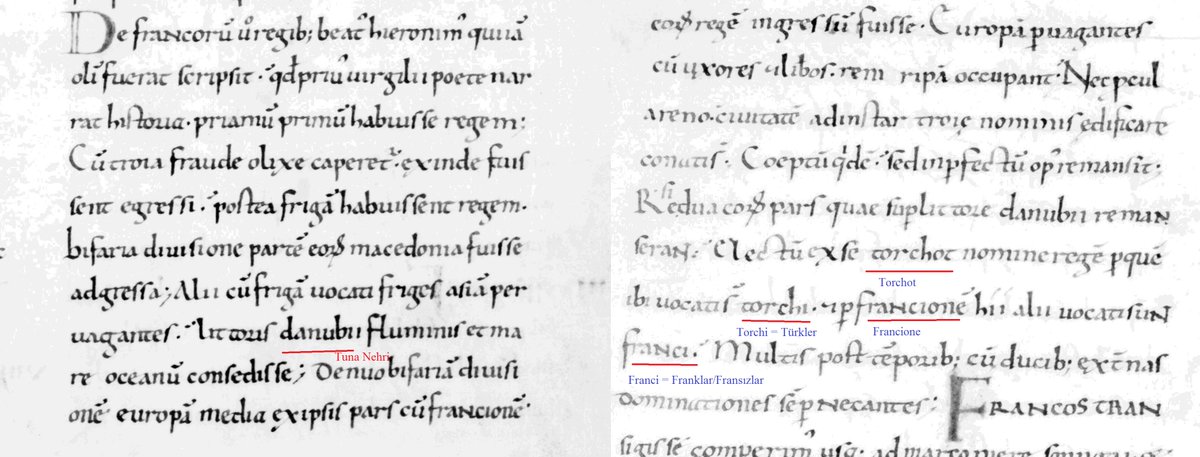 De francorū u̇ regib; beat' hieronim' qui iā
olī fuerat scripsit · qđ priu' uirgilii poete nar
rat historia · priamū primū habuisse regem:
Cū troia fraude olixe caperet' · exinde fuis
sent egressi · postea frigā habuissent regem·
bifaria diuisione partē eoꝝ macedonia fuisse
adgressa; Alii cū frigā uocati friges asiā per
uagantes · littoris danubii fluminis et ma
Tuna Nehri
re oceanū consedisse; Denuo bifariā diuisi
onē europā media ęxipsis pars cū francionē
eoꝝ regē ingressū fuisse · Europā ꝑuagantes
cū uxores & liberos · reni ripā occupant · Nec ꝓcul
a reno · ciuitatē ad instar troię nominis edificare
conatis · Coeptū qđē · sed inꝑfectū op' remansit ·
Resi dua eoꝝ pars quae suꝑ littore danubii reman
seran: Electū ex se torchot nomine regē ꝑ quē
Torchot
ibi uocatis torchi · & ꝑ francionē hii alii uocati sun
Torchi = Türkler
Francione
franci · Multis post tēporib; cū ducib; extnas
Franci = Franklar/Fransızlar
dominationes sēꝑ negantes:
FRANCOS TRAN
sigisse comperim' usq; ad